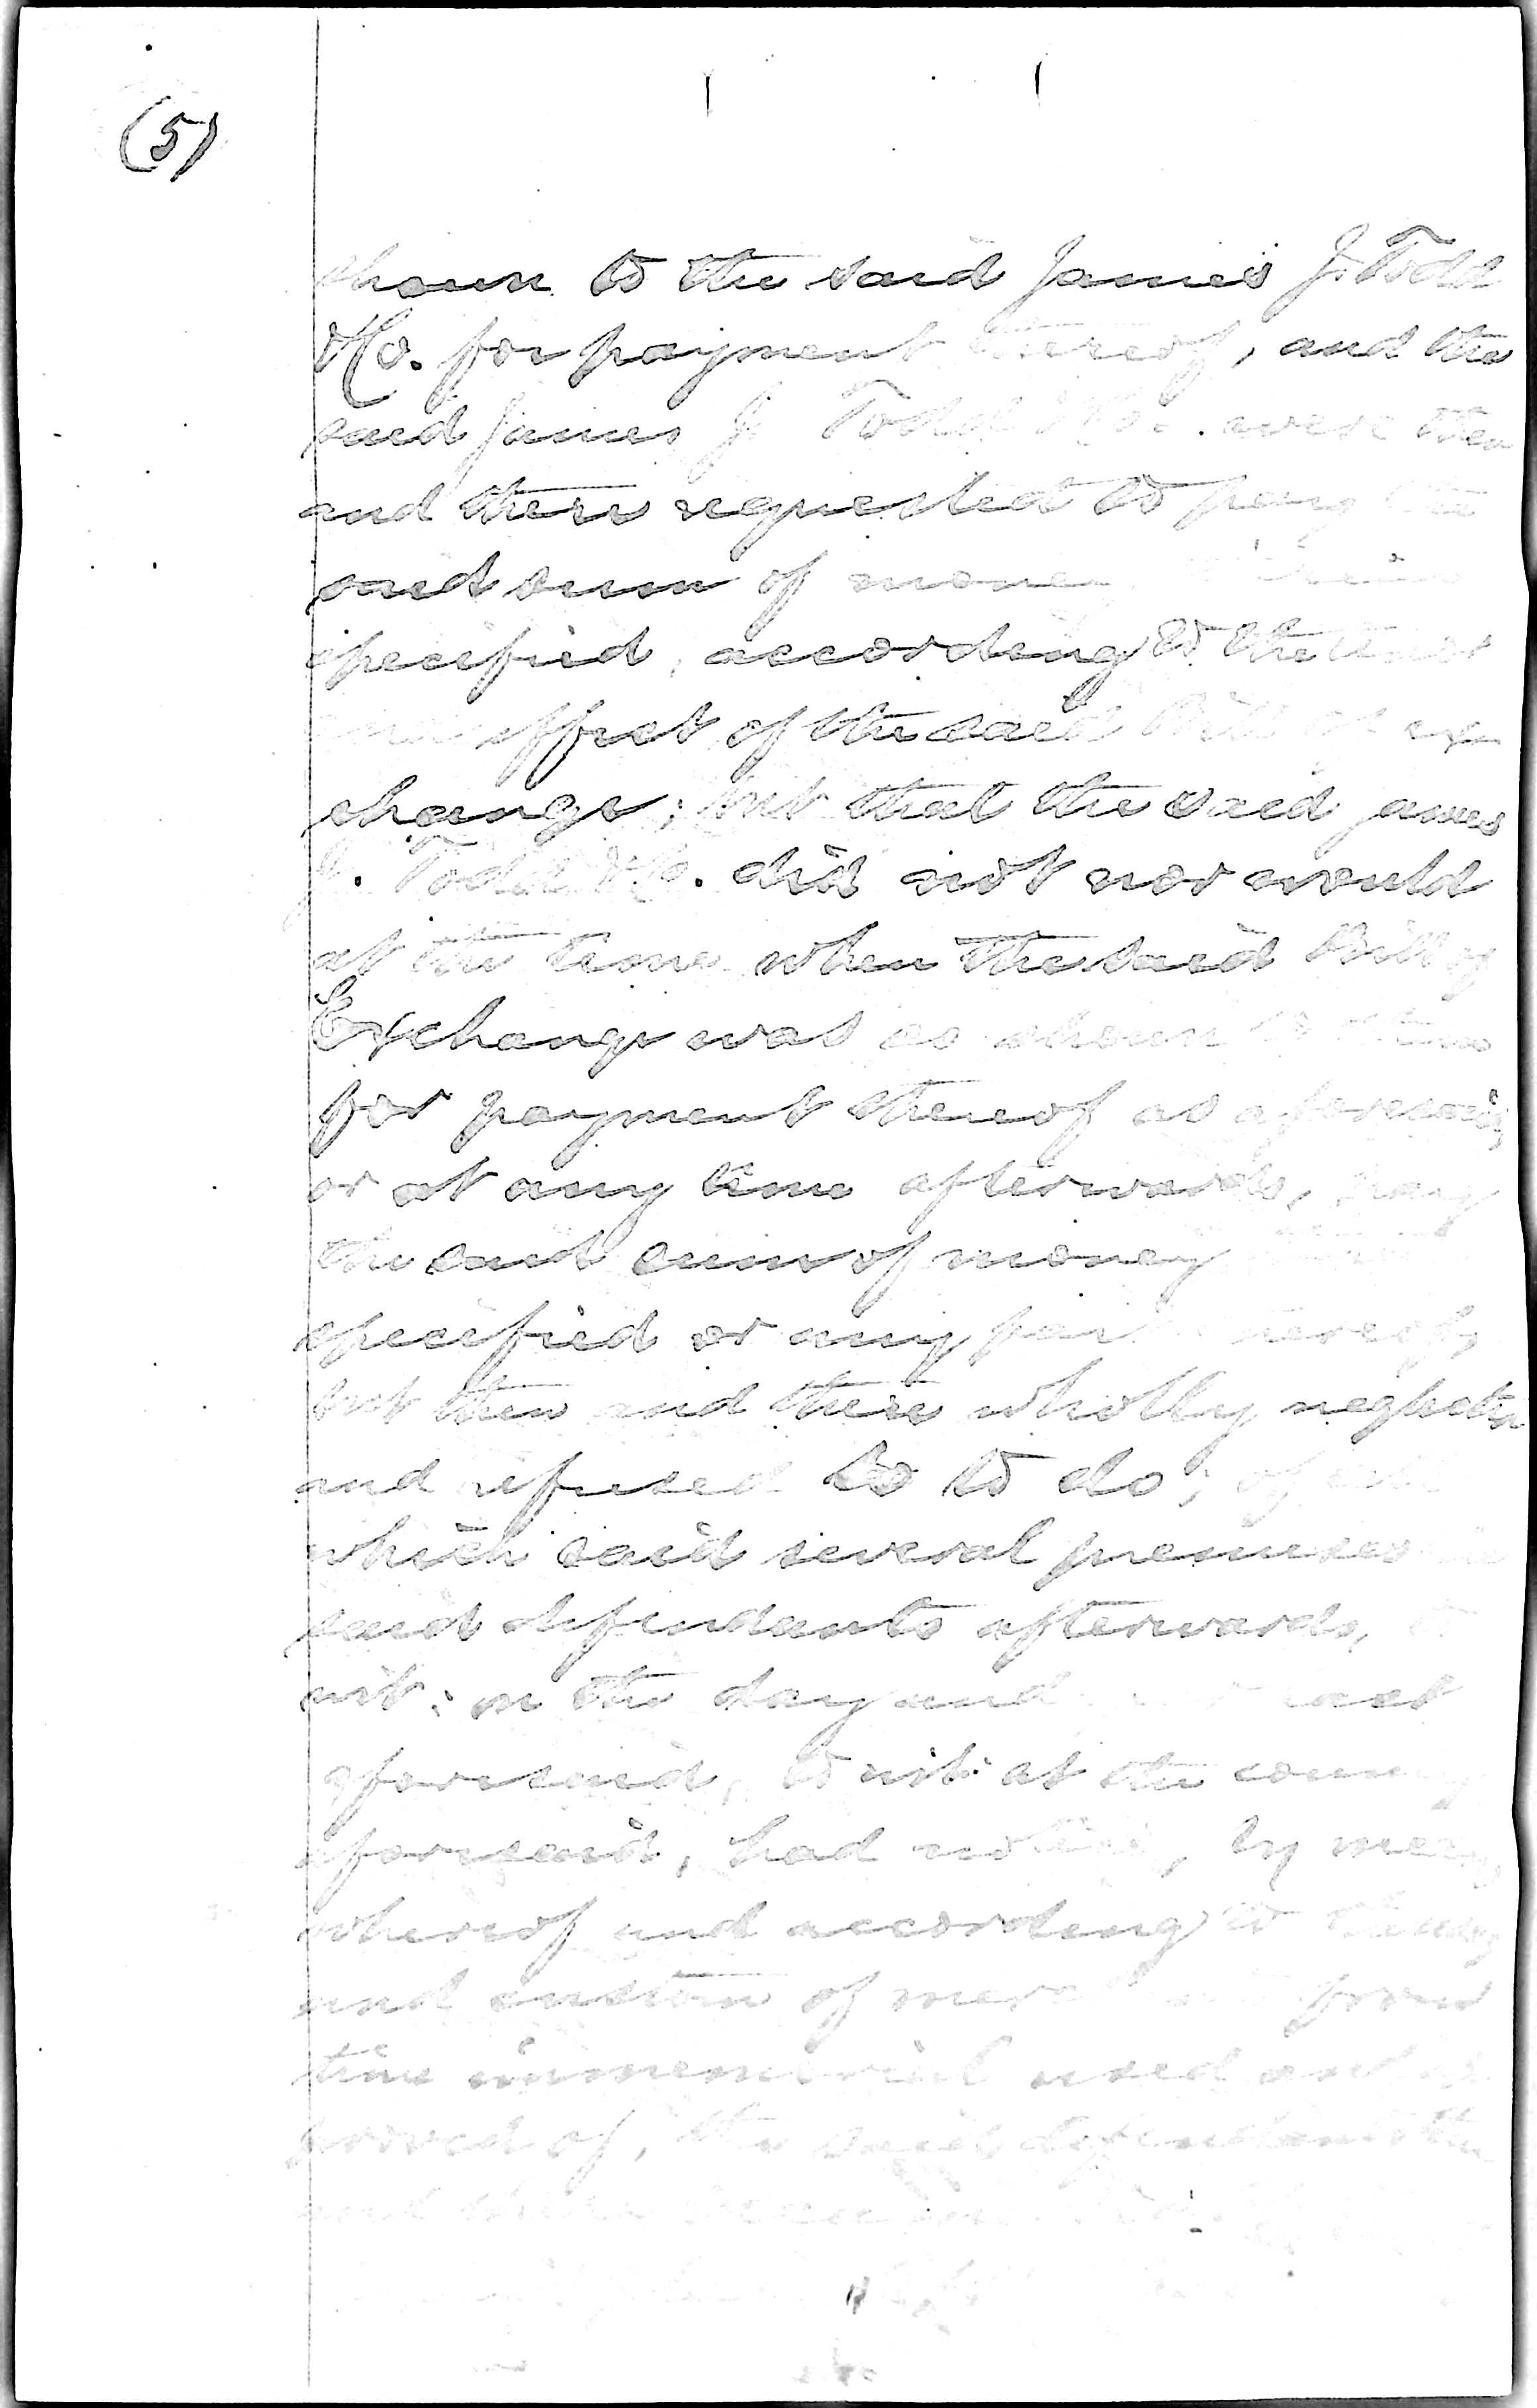 (5)
shown to the said James J. Todd
&Co. for payment thereof, and the
said James J. Todd &Co. were then
and there requested to pay the
said sum of money therein
specified, according to the tenor
and effect of the said Bill of ex
change; but that the said James
J. Todd &Co. did not nor would
at the time when the said Bill of
Exchange was so shown to them
for payment thereof as aforesaid,
or at any time afterwards, pay
the said sum of money
specified or any part thereof,
but then and there wholly neglected
and refused so to do; of all
which said several premises the
said defendants afterwards, to
wit: on the day and year last
aforesaid, to wit: at the county
aforesaid, had notice, by means
whereof and according to the usage
and custom of merchants from
time immemorial used and ap
proved of, the said defendants then
and there became